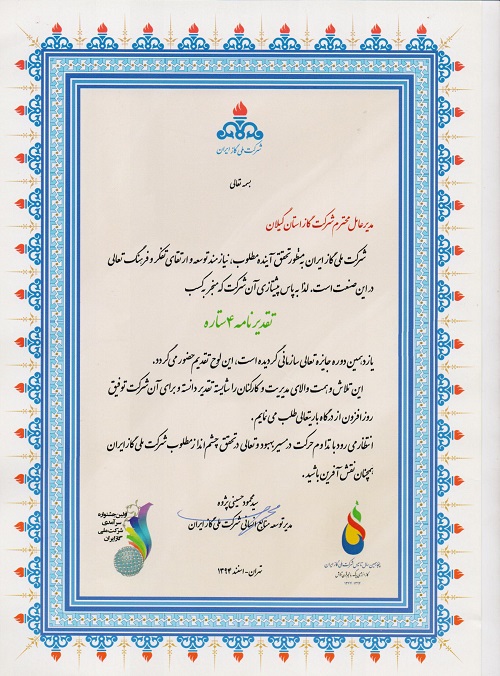 شرکت ملی گاز ایران
بسمه تعالی
مدیرعامل محترم شرکت گاز استان گیلان
شرکت ملی گاز ایران به منظور تحقق آینده مطلوب، نیازمند توسعه و ارتقای تفکر و فرهنگ تعالی
در این صنعت است. لذا به پاس پیشتازی آن شرکت که منجر به کسب
تقدیرنامه ۴ ستاره
یازدهمین دوره جایزه تعالی سازمانی گردیده است، این لوح تقدیم حضور می گردد.
این تلاش و همت والای مدیریت و کارکنان را شایسته تقدیر دانسته و برای آن شرکت توفیق
روز افزون از درگاه باریتعالی طلب می نمایم.
انتظار می رود با تداوم حرکت در مسیر بهبود و تعالی در تحقق چشم انداز مطلوب شرکت ملی گاز ایران
همچنان نقش آفرین باشید.
سید محمود حسینی پژوه
مدیر توسعه منابع انسانی شرکت ملی گاز ایران
تهران - اسفند ۱۳۹۴
اولین جشنواره
سرآمدی
شرکت ملی
گاز ایران